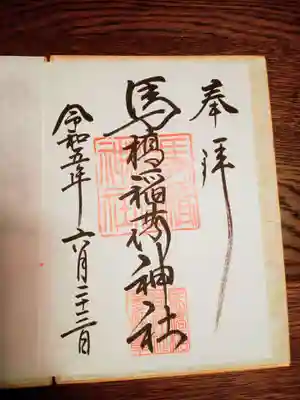 奉拝
馬橋稲荷神社
令和五年六月二十二日